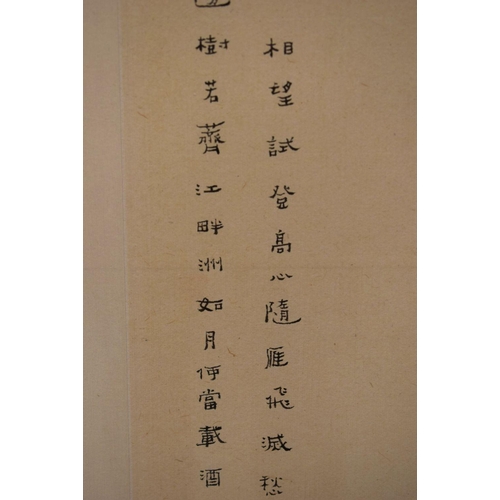 相望試登高心隨雁飛滅愁
樹若薺江畔洲如月何當載酒